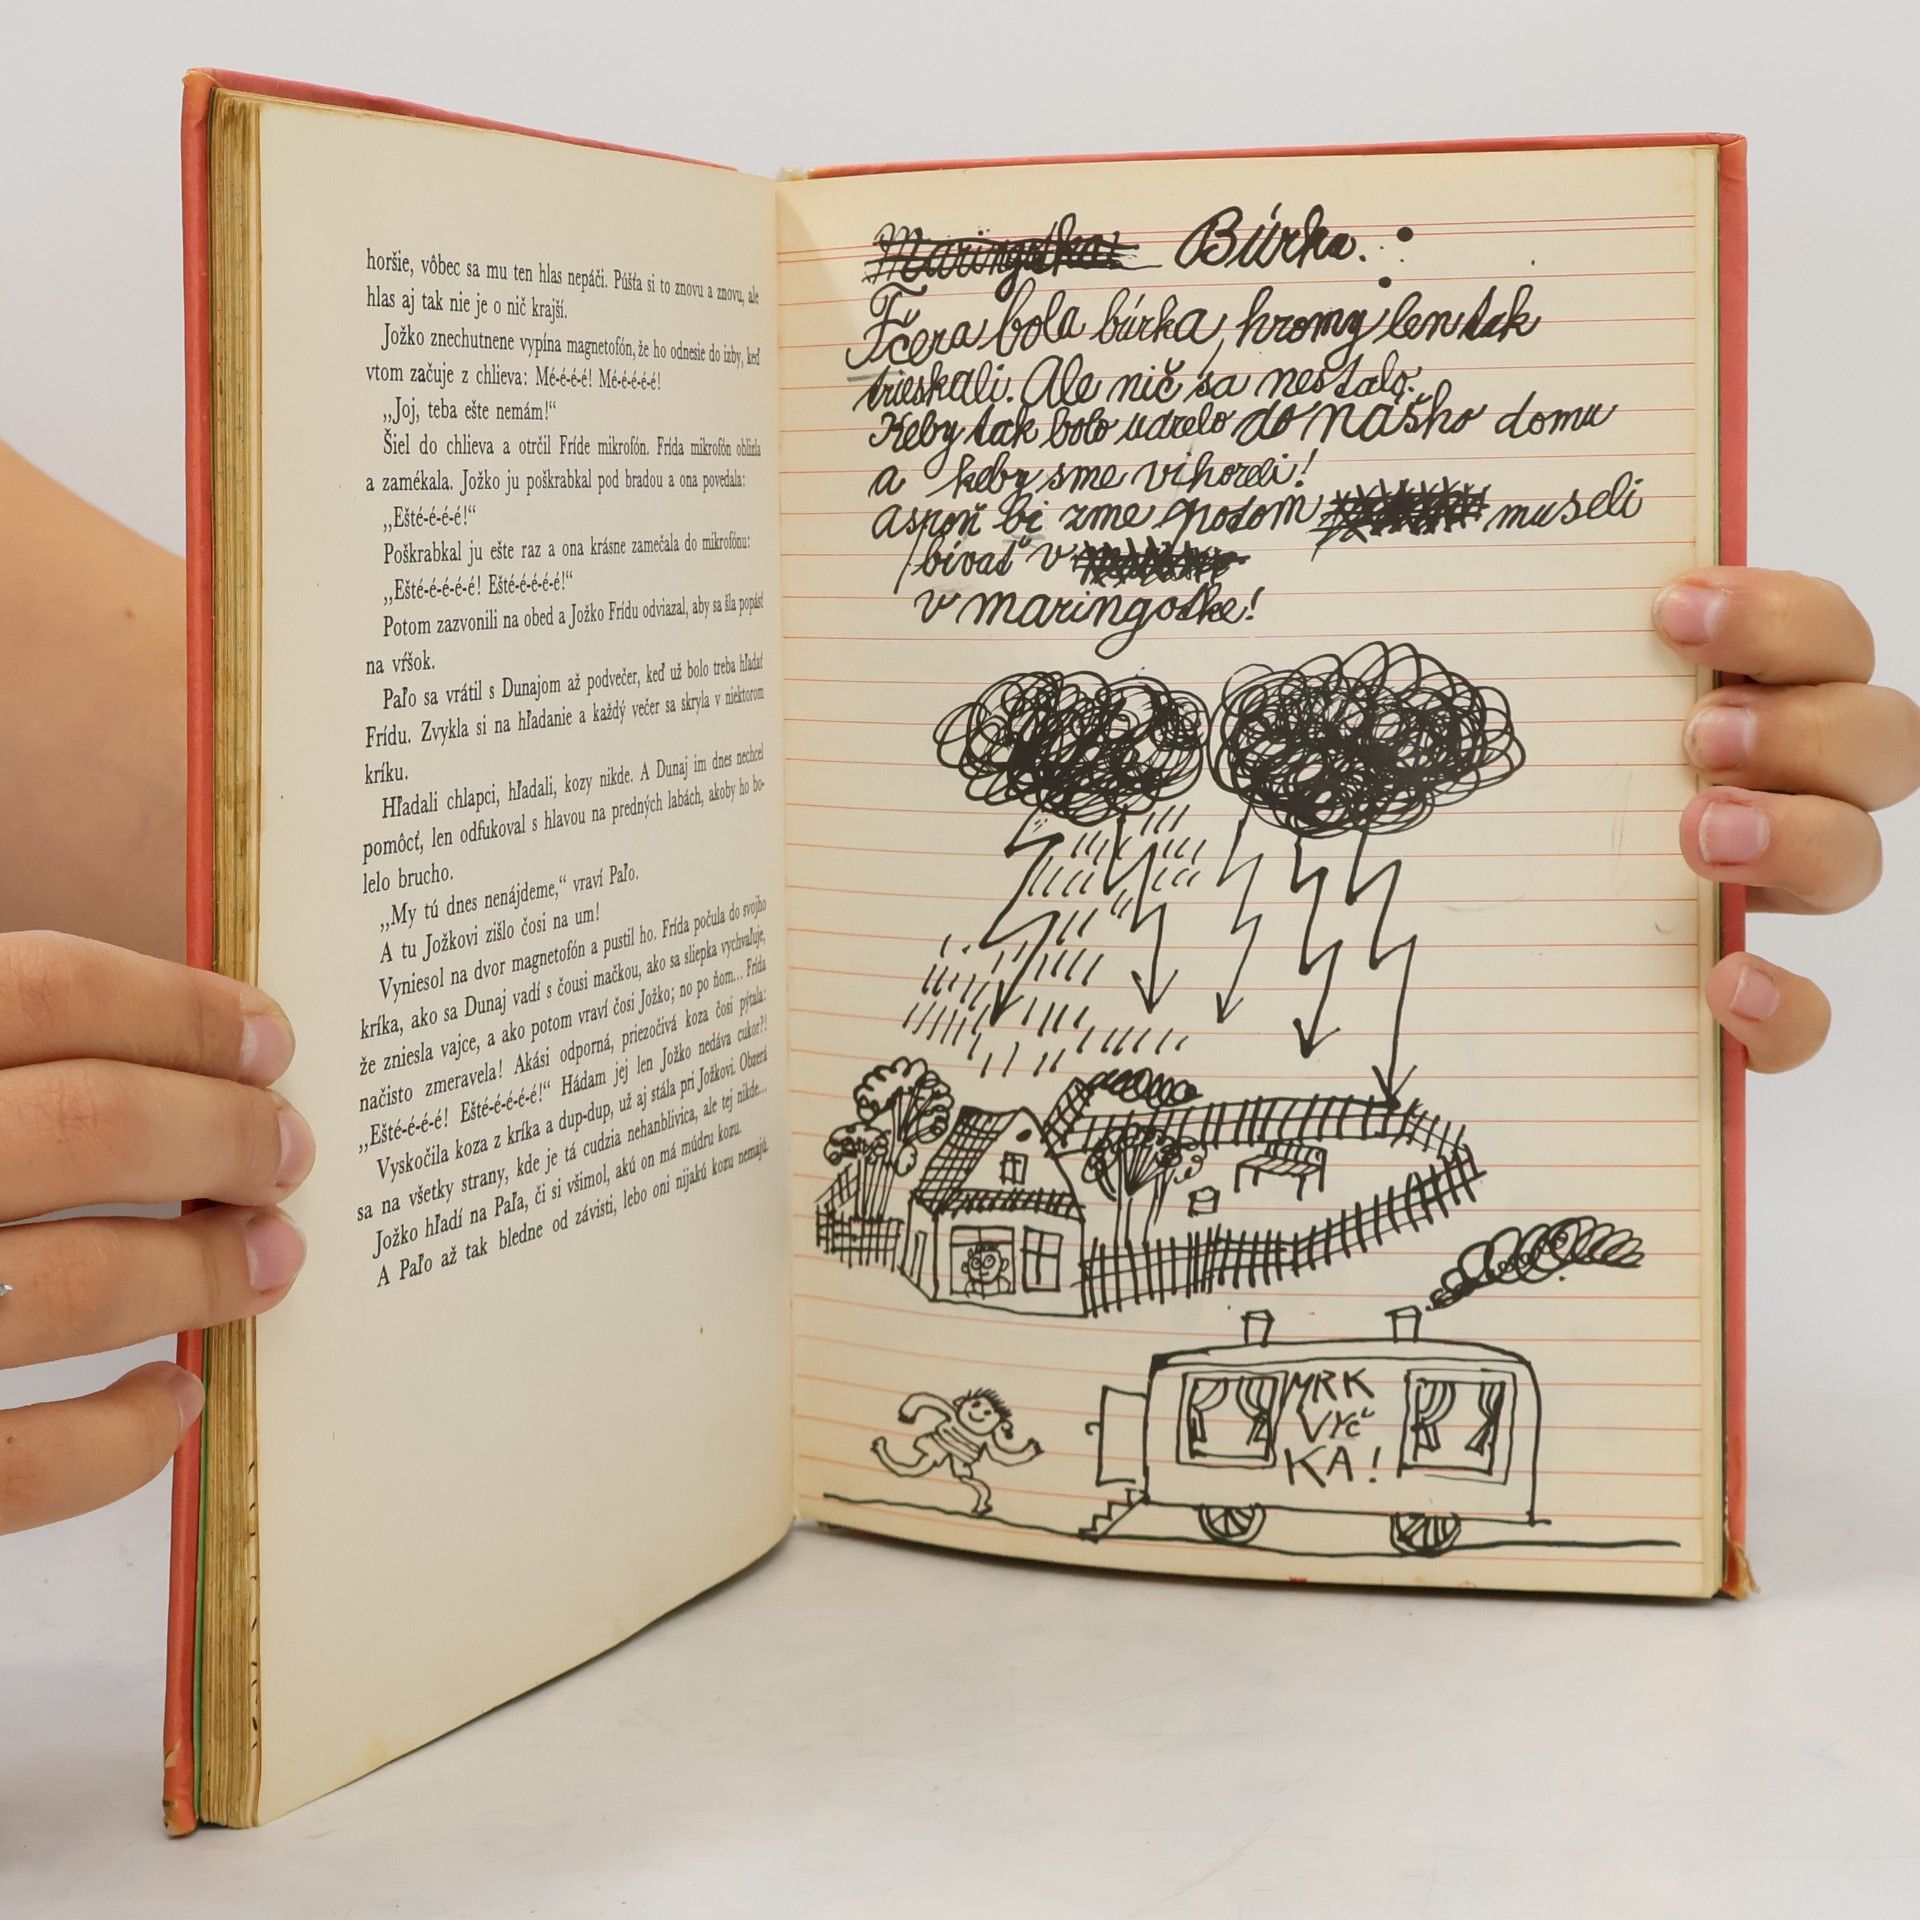 horšie, vôbec sa mu ten hlas nepáči. Púšťa si to znovu a znovu, ale
hlas aj tak nie je o nič krajší.
Jožko znechutnene vypína magnetofón, že ho odnesie do izby, keď
vtom začuje z chlieva: Mé-é-é-é! Mé-é-é-é-é!
„Joj, teba ešte nemám!“
Šiel do chlieva a otrčil Fríde mikrofón. Frída mikrofón oblízla
a zamékala. Jožko ju poškrabkal pod bradou a ona povedala:
„Ešté-é-é-é!“
Poškrabkal ju ešte raz a ona krásne zamečala do mikrofónu:
„Ešté-é-é-é-é! Ešté-é-é-é-é!“
Potom zazvonili na obed a Jožko Frídu odviazal, aby sa šla popásť
na vŕšok.
Paľo sa vrátil s Dunajom až podvečer, keď už bolo treba hľadať
Frídu. Zvykla si na hľadanie a každý večer sa skryla v niektorom
kríku.
Hľadali chlapci, hľadali, kozy nikde. A Dunaj im dnes nechcel
pomôcť, len odfukoval s hlavou na predných labách, akoby ho bo-
lelo brucho.
„My tú dnes nenájdeme,“ vraví Paľo.
A tu Jožkovi zišlo čosi na um!
Vyniesol na dvor magnetofón a pustil ho. Frída počula do svojho
kríka, ako sa Dunaj vadí s čousi mačkou, ako sa sliepka vychvaľuje,
že zniesla vajce, a ako potom vraví čosi Jožko; no po ňom... Frída
načisto zmeravela! Akási odporná, priezočivá koza čosi pýtala:
„Ešté-é-é-é! Ešté-é-é-é-é!“ Hádam jej len Jožko nedáva cukor?!
Vyskočila koza z kríka a dup-dup, už aj stála pri Jožkovi. Obzerá
sa na všetky strany, kde je tá cudzia nehanblivica, ale tej nikde...
Jožko hľadí na Paľa, či si všimol, akú on má múdru kozu.
A Paľo až tak bledne od závisti, lebo oni nijakú kozu nemajú.
Maringotka. Búrka.
Fčera bola búrka, hromy len tak
trieskali. Ale nič sa nestalo.
Keby tak bolo udrelo do nášho domu
a keby sme vihoreli!
aspoň bi zme potom museli
bívať v
v maringotke!
MRK
VYČ
KA!